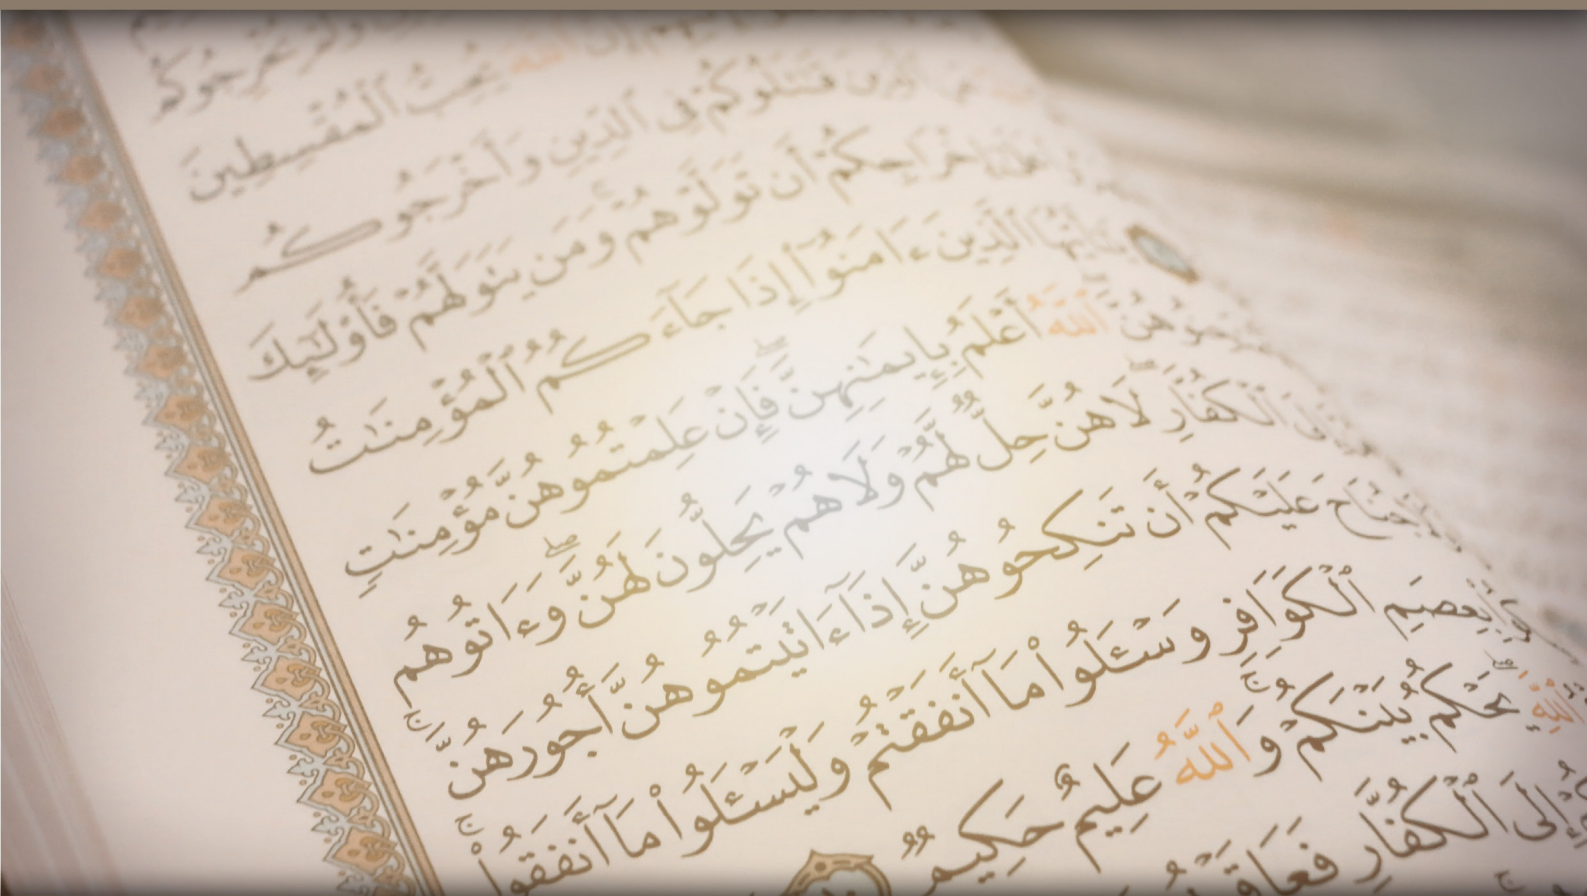 يُخْرِجُوكُم
إِنَّ ٱللَّهَ يُحِبُّ ٱلْمُقْسِطِينَ
ٱلَّذِينَ قَـٰتَلُوكُمْ فِى ٱلدِّينِ وَأَخْرَجُوكُم
إِخْرَاجِكُمْ أَن تَوَلَّوْهُمْ وَمَن يَتَوَلَّهُمْ فَأُو۟لَـٰٓئِكَ
يَـٰٓأَيُّهَا ٱلَّذِينَ ءَامَنُوٓا۟ إِذَا جَآءَكُمُ ٱلْمُؤْمِنَـٰتُ
ٱللَّهُ أَعْلَمُ بِإِيمَـٰنِهِنَّ ۖ فَإِنْ عَلِمْتُمُوهُنَّ مُؤْمِنَـٰتٍ
ٱلْكُفَّارِ ۖ لَا هُنَّ حِلٌّ لَّهُمْ وَلَا هُمْ يَحِلُّونَ لَهُنَّ ۖ وَءَاتُوهُم
جُنَاحَ عَلَيْكُمْ أَن تَنكِحُوهُنَّ إِذَآ ءَاتَيْتُمُوهُنَّ أُجُورَهُنَّ ۚ
بِعِصَمِ ٱلْكَوَافِرِ وَسْـَٔلُوا۟ مَآ أَنفَقْتُمْ وَلْيَسْـَٔلُوا۟ مَآ أَنفَقُوا۟ ۚ
ٱللَّهِ ۖ يَحْكُمُ بَيْنَكُمْ ۚ وَٱللَّهُ عَلِيمٌ حَكِيمٌ
إِلَى ٱلْكُفَّارِ